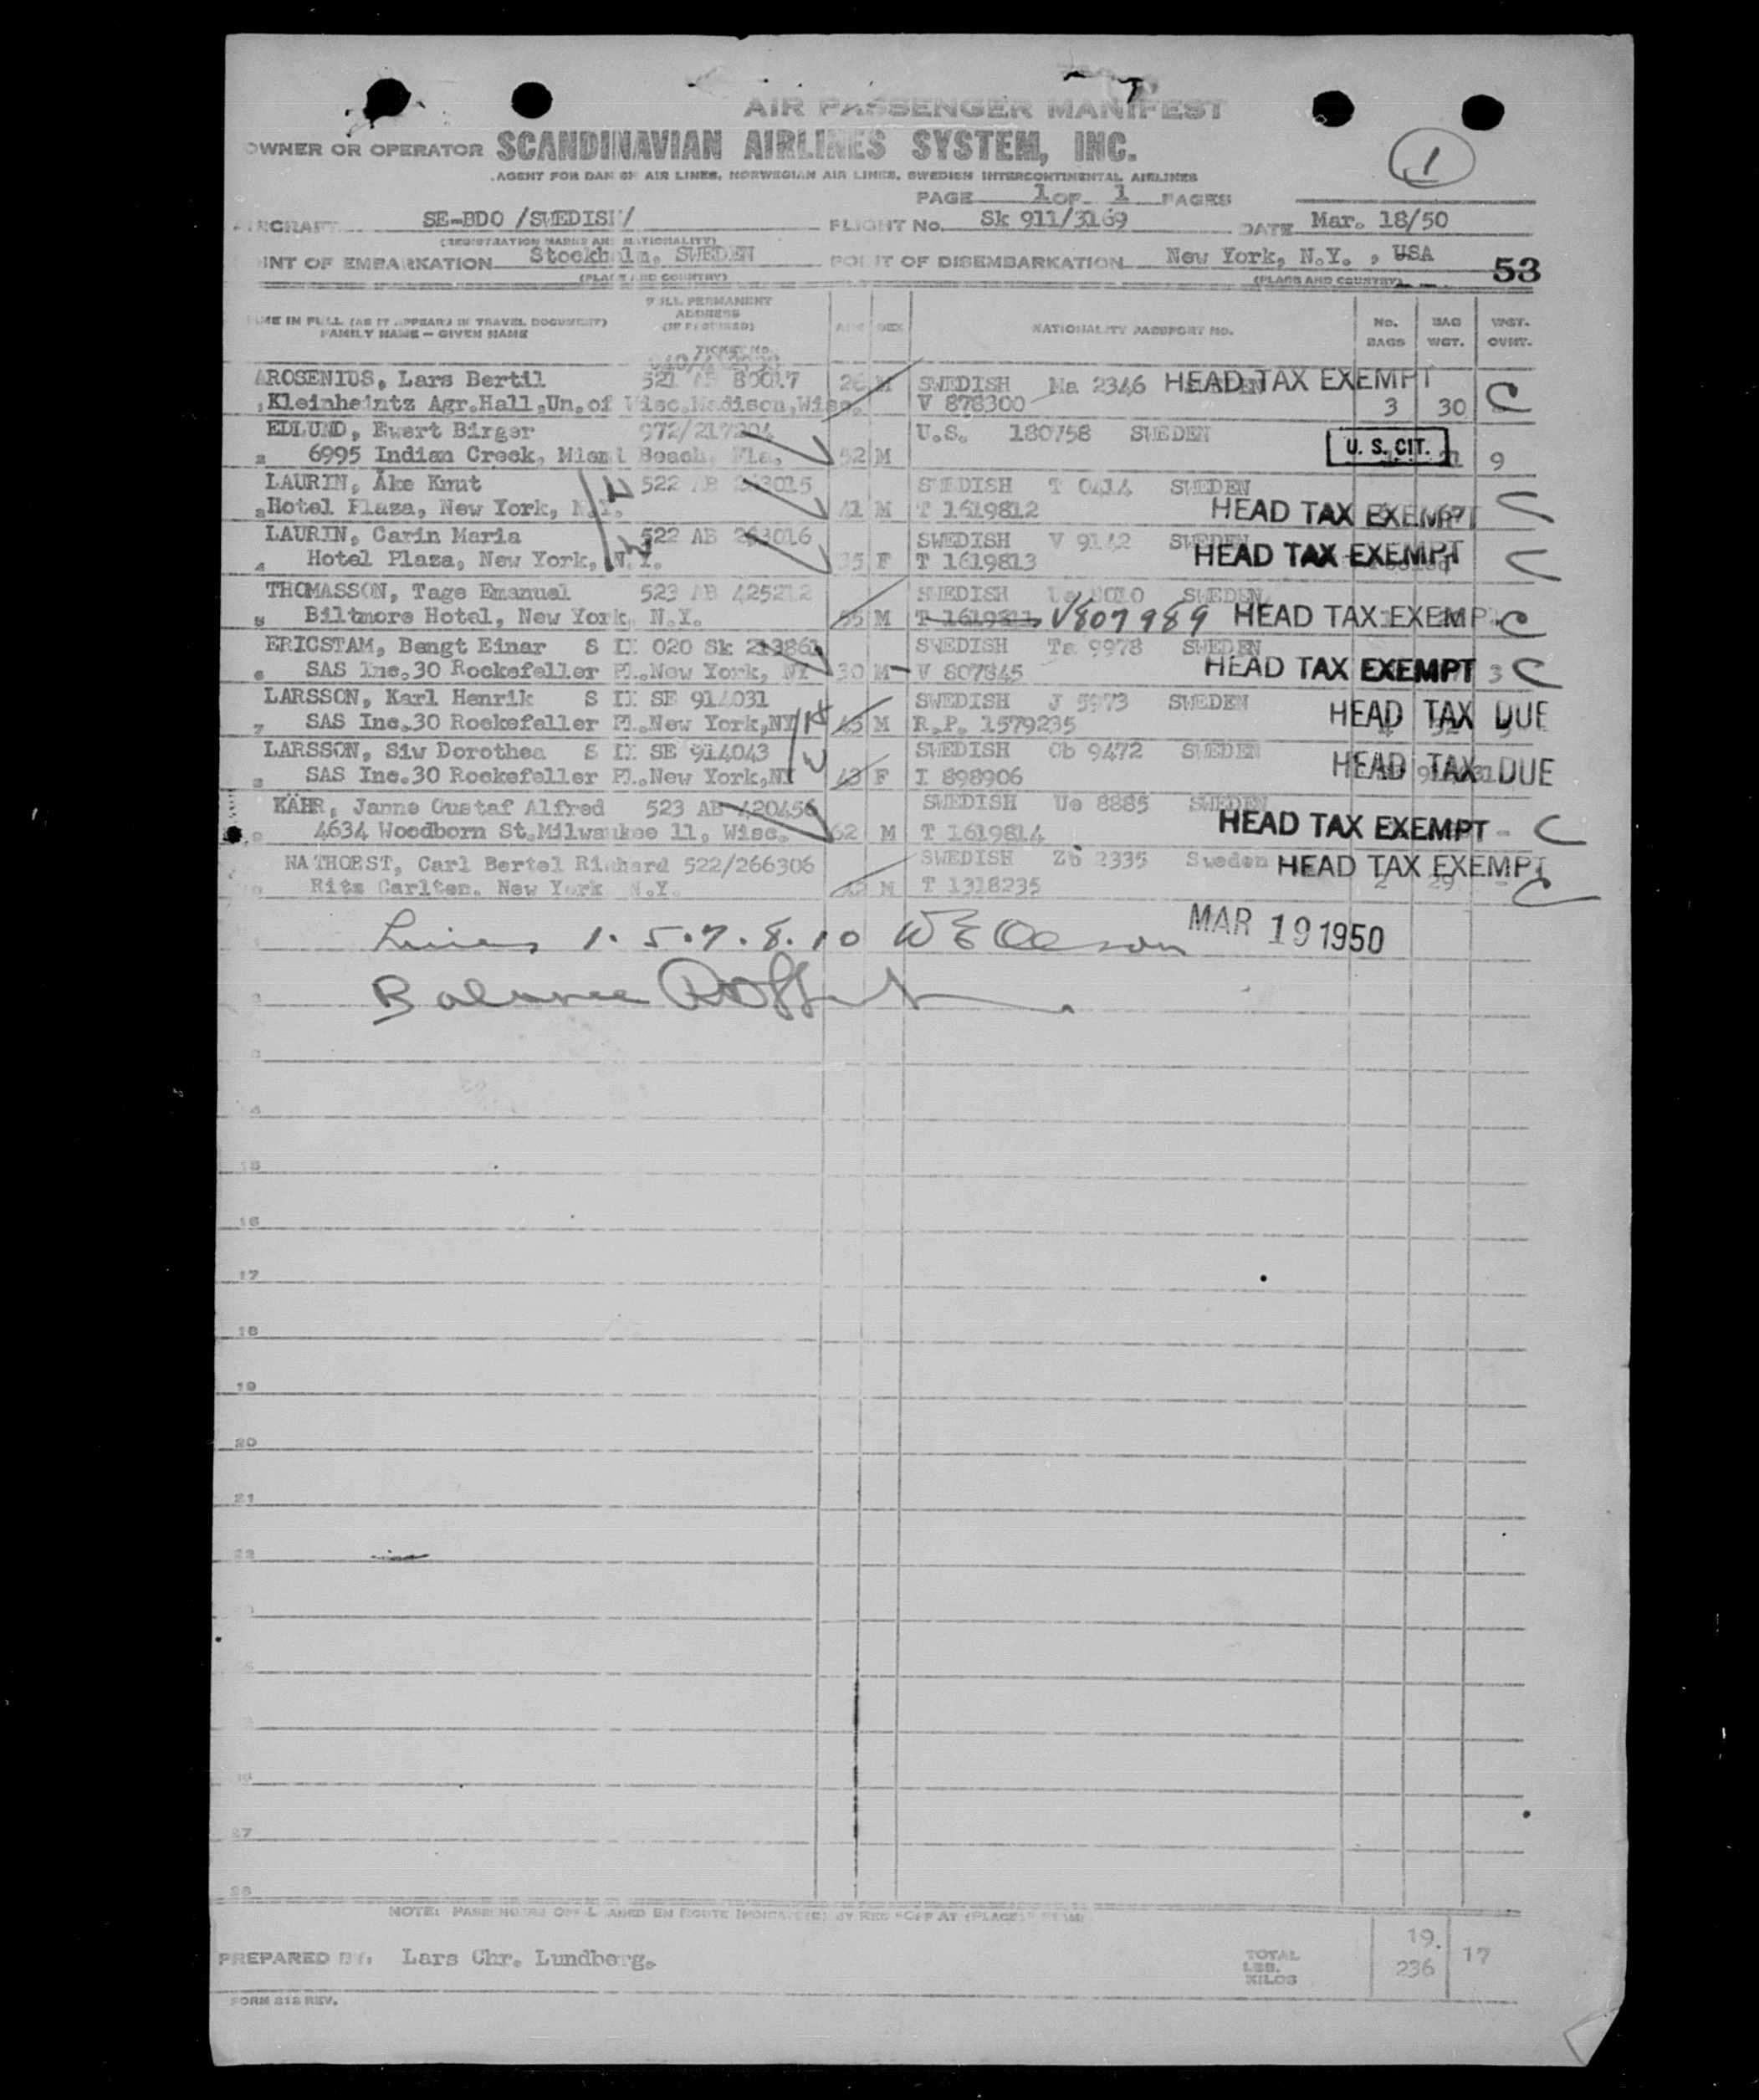 AIR PASSENGER MANIFEST
OWNER OR OPERATOR SCANDINAVIAN AIRLINES SYSTEM, INC.
AGENT FOR DANISH AIR LINES, NORWEGIAN AIR LINES, SWEDISH INTERCONTINENTAL AIRLINES
1
PAGE 1 OF 1 PAGES
AIRCRAFT SE-BDO /SWEDISH/ FLIGHT No. Sk 911/3169 DATE Mar. 18/50
(REGISTRATION MARKS AND NATIONALITY)
POINT OF EMBARKATION Stockholm, SWEDEN POINT OF DISEMBARKATION New York, N.Y. , USA 53
(PLACE AND COUNTRY) (PLACE AND COUNTRY)
NAME IN FULL (AS IT APPEARS IN TRAVEL DOCUMENT) FULL PERMANENT ADDRESS (IF REQUIRED) AGE SEX NATIONALITY PASSPORT NO. No. BAGS BAG WGT. WGT. OVHT.
FAMILY NAME — GIVEN NAME
TICKET No.
AROSENIUS, Lars Bertil 521 AB 80017 26 M SWEDISH Ma 2346 HEAD TAX EXEMPT
Kleinheintz Agr.Hall,Un.of Wisc.Madison,Wisc. V 878300 3 30 C
EDLUND, Ewert Birger 972/217204 U.S. 180758 SWEDEN
2 6995 Indian Creek, Miami Beach, Fla. 52 M U. S. CIT. 9
LAURIN, Åke Knut 522 AB 263015 SWEDISH T 0414 SWEDEN
3 Hotel Plaza, New York, N.Y. 41 M T 1619812 HEAD TAX EXEMPT C
LAURIN, Carin Maria 522 AB 263016 SWEDISH V 9142 SWEDEN
4 Hotel Plaza, New York, N.Y. 35 F T 1619813 HEAD TAX EXEMPT C
THOMASSON, Tage Emanuel 523 AB 425212 SWEDISH 8010 SWEDEN
5 Biltmore Hotel, New York N.Y. 55 M T 1619811 V807989 HEAD TAX EXEMPT C
ERICSTAM, Bengt Einar S II 020 Sk 213861 SWEDISH Ta 9978 SWEDEN
6 SAS Inc.30 Rockefeller Pl.New York, NY 30 M V 807845 HEAD TAX EXEMPT 3 C
LARSSON, Karl Henrik S II SE 914031 SWEDISH J 5973 SWEDEN
7 SAS Inc.30 Rockefeller Pl.New York,NY 45 M R.P. 1579235 HEAD TAX DUE
LARSSON, Siw Dorothea S II SE 914043 SWEDISH Ob 9472 SWEDEN
8 SAS Inc.30 Rockefeller Pl.New York,NY 43 F I 898906 HEAD TAX DUE
KÄHR, Janne Gustaf Alfred 523 AB 420456 SWEDISH Ue 8885 SWEDEN
9 4634 Woodborn St.Milwaukee 11, Wisc. 62 M T 1619814 HEAD TAX EXEMPT - C
NATHORST, Carl Bertel Richard 522/266306 SWEDISH Zb 2335 Sweden HEAD TAX EXEMPT
10 Ritz Carlten. New York N.Y. 42 M T 1318235 2 29 - C
Lines 1.5.7.8.10 W E Olesson MAR 19 1950
Balance
15
16
17
18
19
20
21
22
27
28
NOTE: PASSENGERS OFF-LOADED EN ROUTE INDICATE(D) BY RED "OFF AT (PLACE)" STAMP
PREPARED BY: Lars Chr. Lundberg. TOTAL LBS. KILOS 19. 236 17
FORM 212 REV.